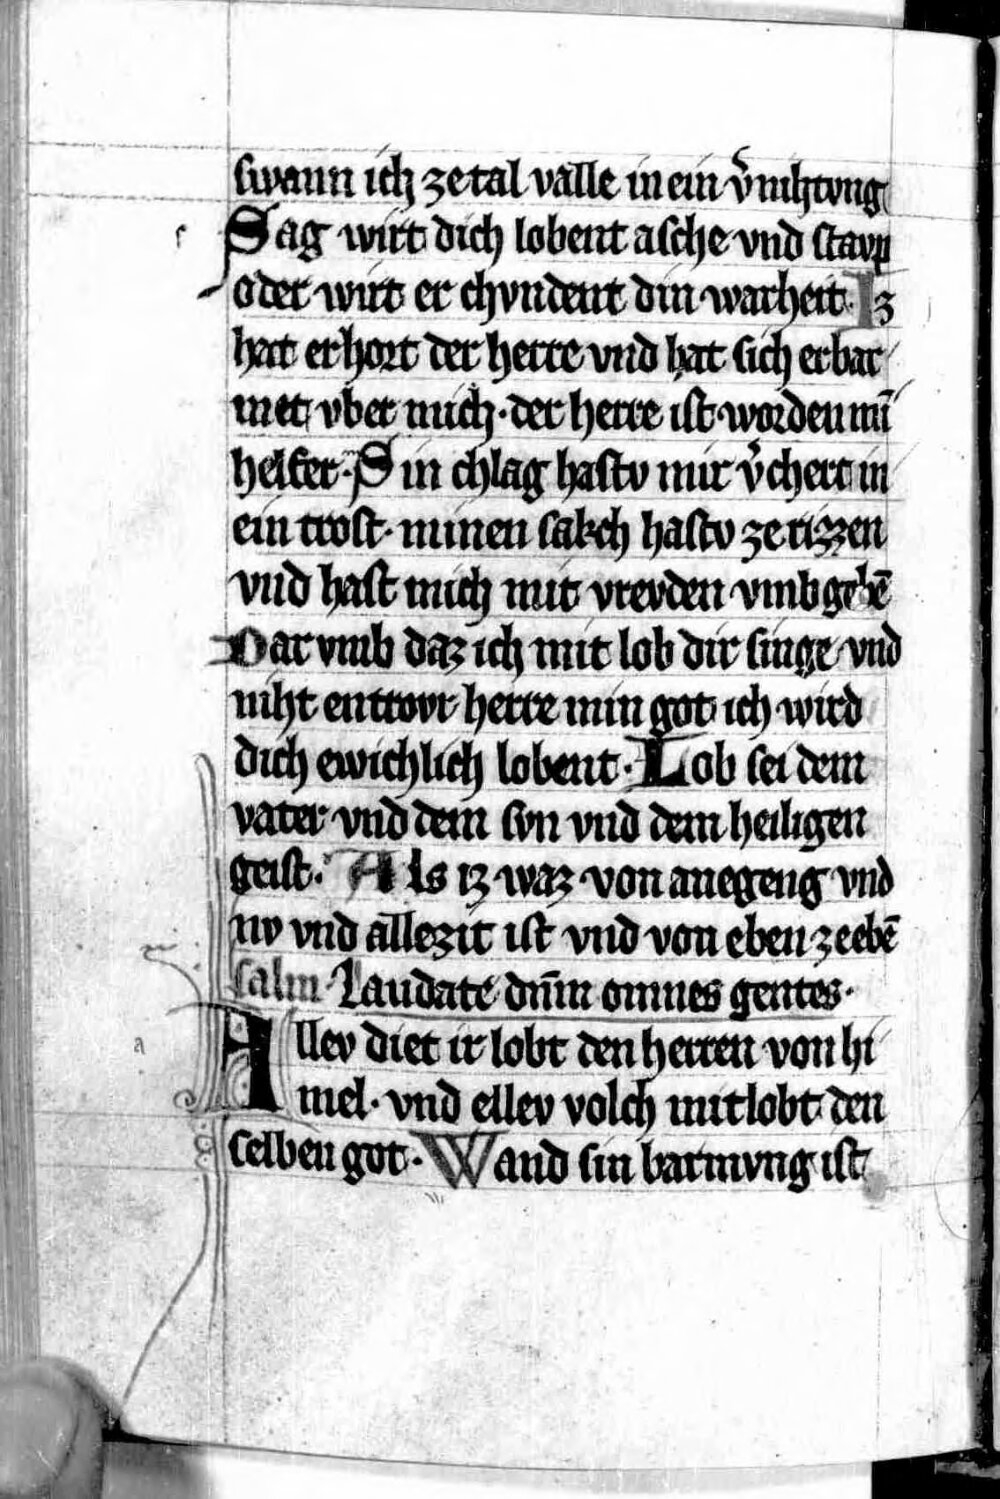 swann ich ze tal valle in ein v͛nihtvng
Sag wirt dich lobent asche vnd stavp
oder wirt er chvndent din warheit· Iz
hat erhort der herre vnd hat sich erbar
met vber mich· der herre ist worden mī
helfer· Sin chlag hastv mir v͛chert in
ein trost· minen sakch hastv zerizzen
vnd hast mich mit vrevden vmbgebē
Dar vmb daz ich mit lob dir singe vnd
niht entrovr herre min got ich wird
dich ewichlich lobent· Lob sei dem
vater vnd dem svn vnd dem heiligen
geist· Als iz waz von anegeng vnd
nv vnd allezit ist vnd von eben ze ebē
salm Laudate dn̄m omnes gentes·
Allev diet ir lobt den herren von hi
mel· vnd ellev volch mitlobt den
selben got· Wand sin barmvng ist